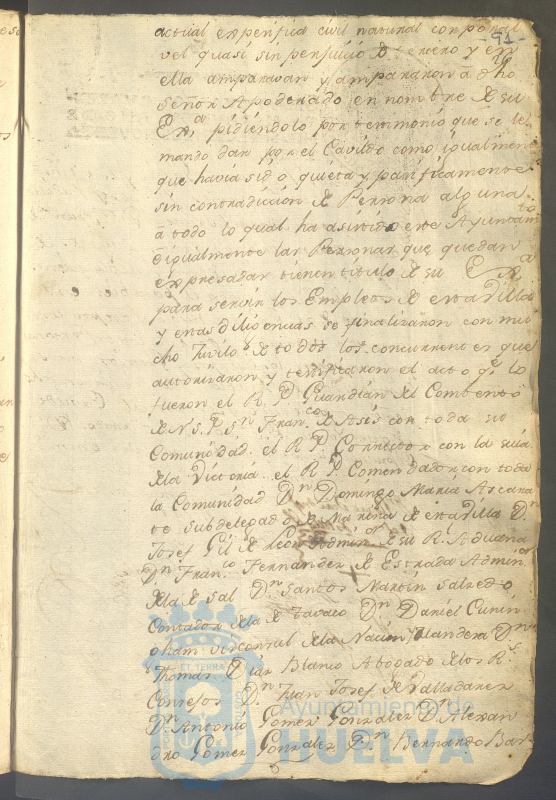 51
actual expesifica civil natural corporal
vel quasi sin perjuicio de tercero y en
ella ampararan y ampararon a dho
Señor Apoderado en nombre de su
Exa. pidiendolo por testimonio que se le
mando dar por el Cavildo como igualmente
que havia sido quieta y pacificamente
sin contradicion de Persona alguna
a todo lo qual ha asistido este Ayuntamto
e igualmente las Personas que quedan
expresadas tienen titulo de su Exa
para servir los Empleos de esta Villa
y estas diligencias se finalizaron con mu
cho Jubilo de todos los concurrentes que
autorizaron y testificaron el acto qe lo
fueron el R. P. Guardian del Combento
de N. S. P. Sn Franco de Asis con toda su
Comunidad. el R. P. Corrector con la suia
de la Victoria. el R. P. Comendador con toda
la Comunidad Dn Domingo Maria Ascara
te Subdelegado de Marina de esta Villa Dn
Josef Gil de Leon Admor de su Rl Aduana
Dn Franco Fernandez de Estrada Admor
de la de Sal Dn Santos Martin Salzedo
Contador de la de Tavaco Dn Daniel Cunin
gham Viceconsul de la Nacion Olandesa Dn
Thomas Diaz Blanco Abogado de los Rs
Consejos Dn Juan Josef de Valladares
Dn Antonio Gomez Gonzalez Dn Alexan
dro Gomez Gonzalez Dn Bernardo Bar
ET TERRA
Ayuntamiento de
HUELVA